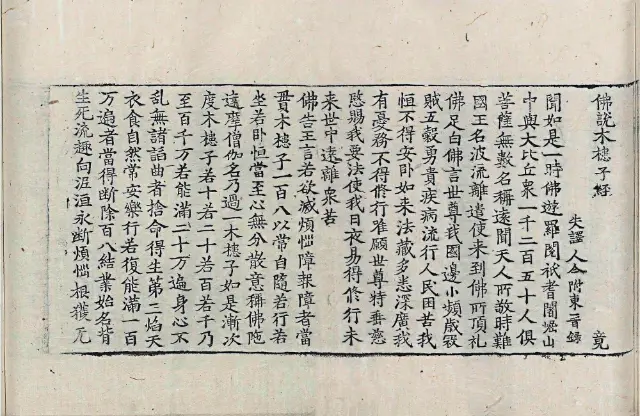 佛説木槵子經
失譯人今附東晉録 竟
聞如是一時佛遊羅閱祇耆闍崛山
中與大比丘衆一千二百五十人俱
菩薩無數名稱遠聞天人所敬時難
國王名波流離遣使來到佛所頂礼
佛足白佛言世尊我國邊小頻歲寇
賊五穀勇貴疾病流行人民困苦我
恒不得安卧如来法藏多悉深廣我
有憂務不得修行唯願世尊特垂慈
愍賜我要法使我日夜易得修行未
来世中遠離衆苦
佛告王言若欲滅煩惱障報障者當
貫木槵子一百八以常自隨若行若
坐若卧恒當至心無分散意稱佛陁
達摩僧伽名乃過一木槵子如是漸次
度木槵子若十若二十若百若千乃
至百千万若能滿二十万遍身心不
乱無諸謟曲者捨命得生第三焰天
衣食自然常安樂行若復能滿一百
万遍者當得断除百八結業始名背
生死流趣向泥洹永断煩惱根獲无